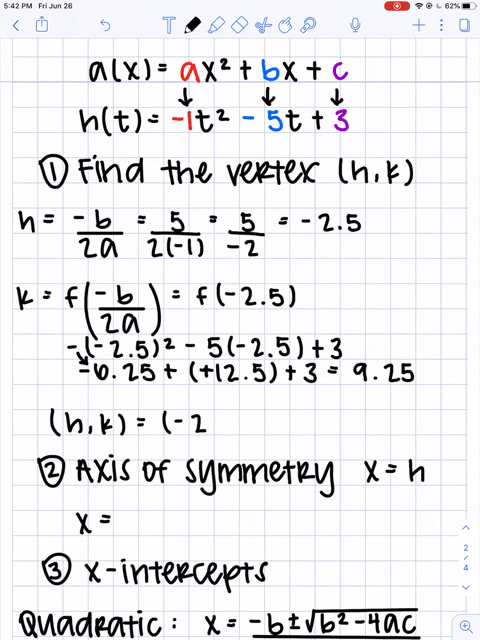 5:42 PM Fri Jun 26
62%
a(x) = ax² + bx + c
h(t) = -1t² - 5t + 3
① Find the vertex (h,k)
h = -b/2a = 5/2(-1) = 5/-2 = -2.5
k = f(-b/2a) = f(-2.5)
-(-2.5)² - 5(-2.5) + 3
-6.25 + (+12.5) + 3 = 9.25
(h,k) = (-2
② Axis of symmetry x = h
x =
③ x-intercepts
Quadratic: x = -b ± √b² - 4ac
2
/
4